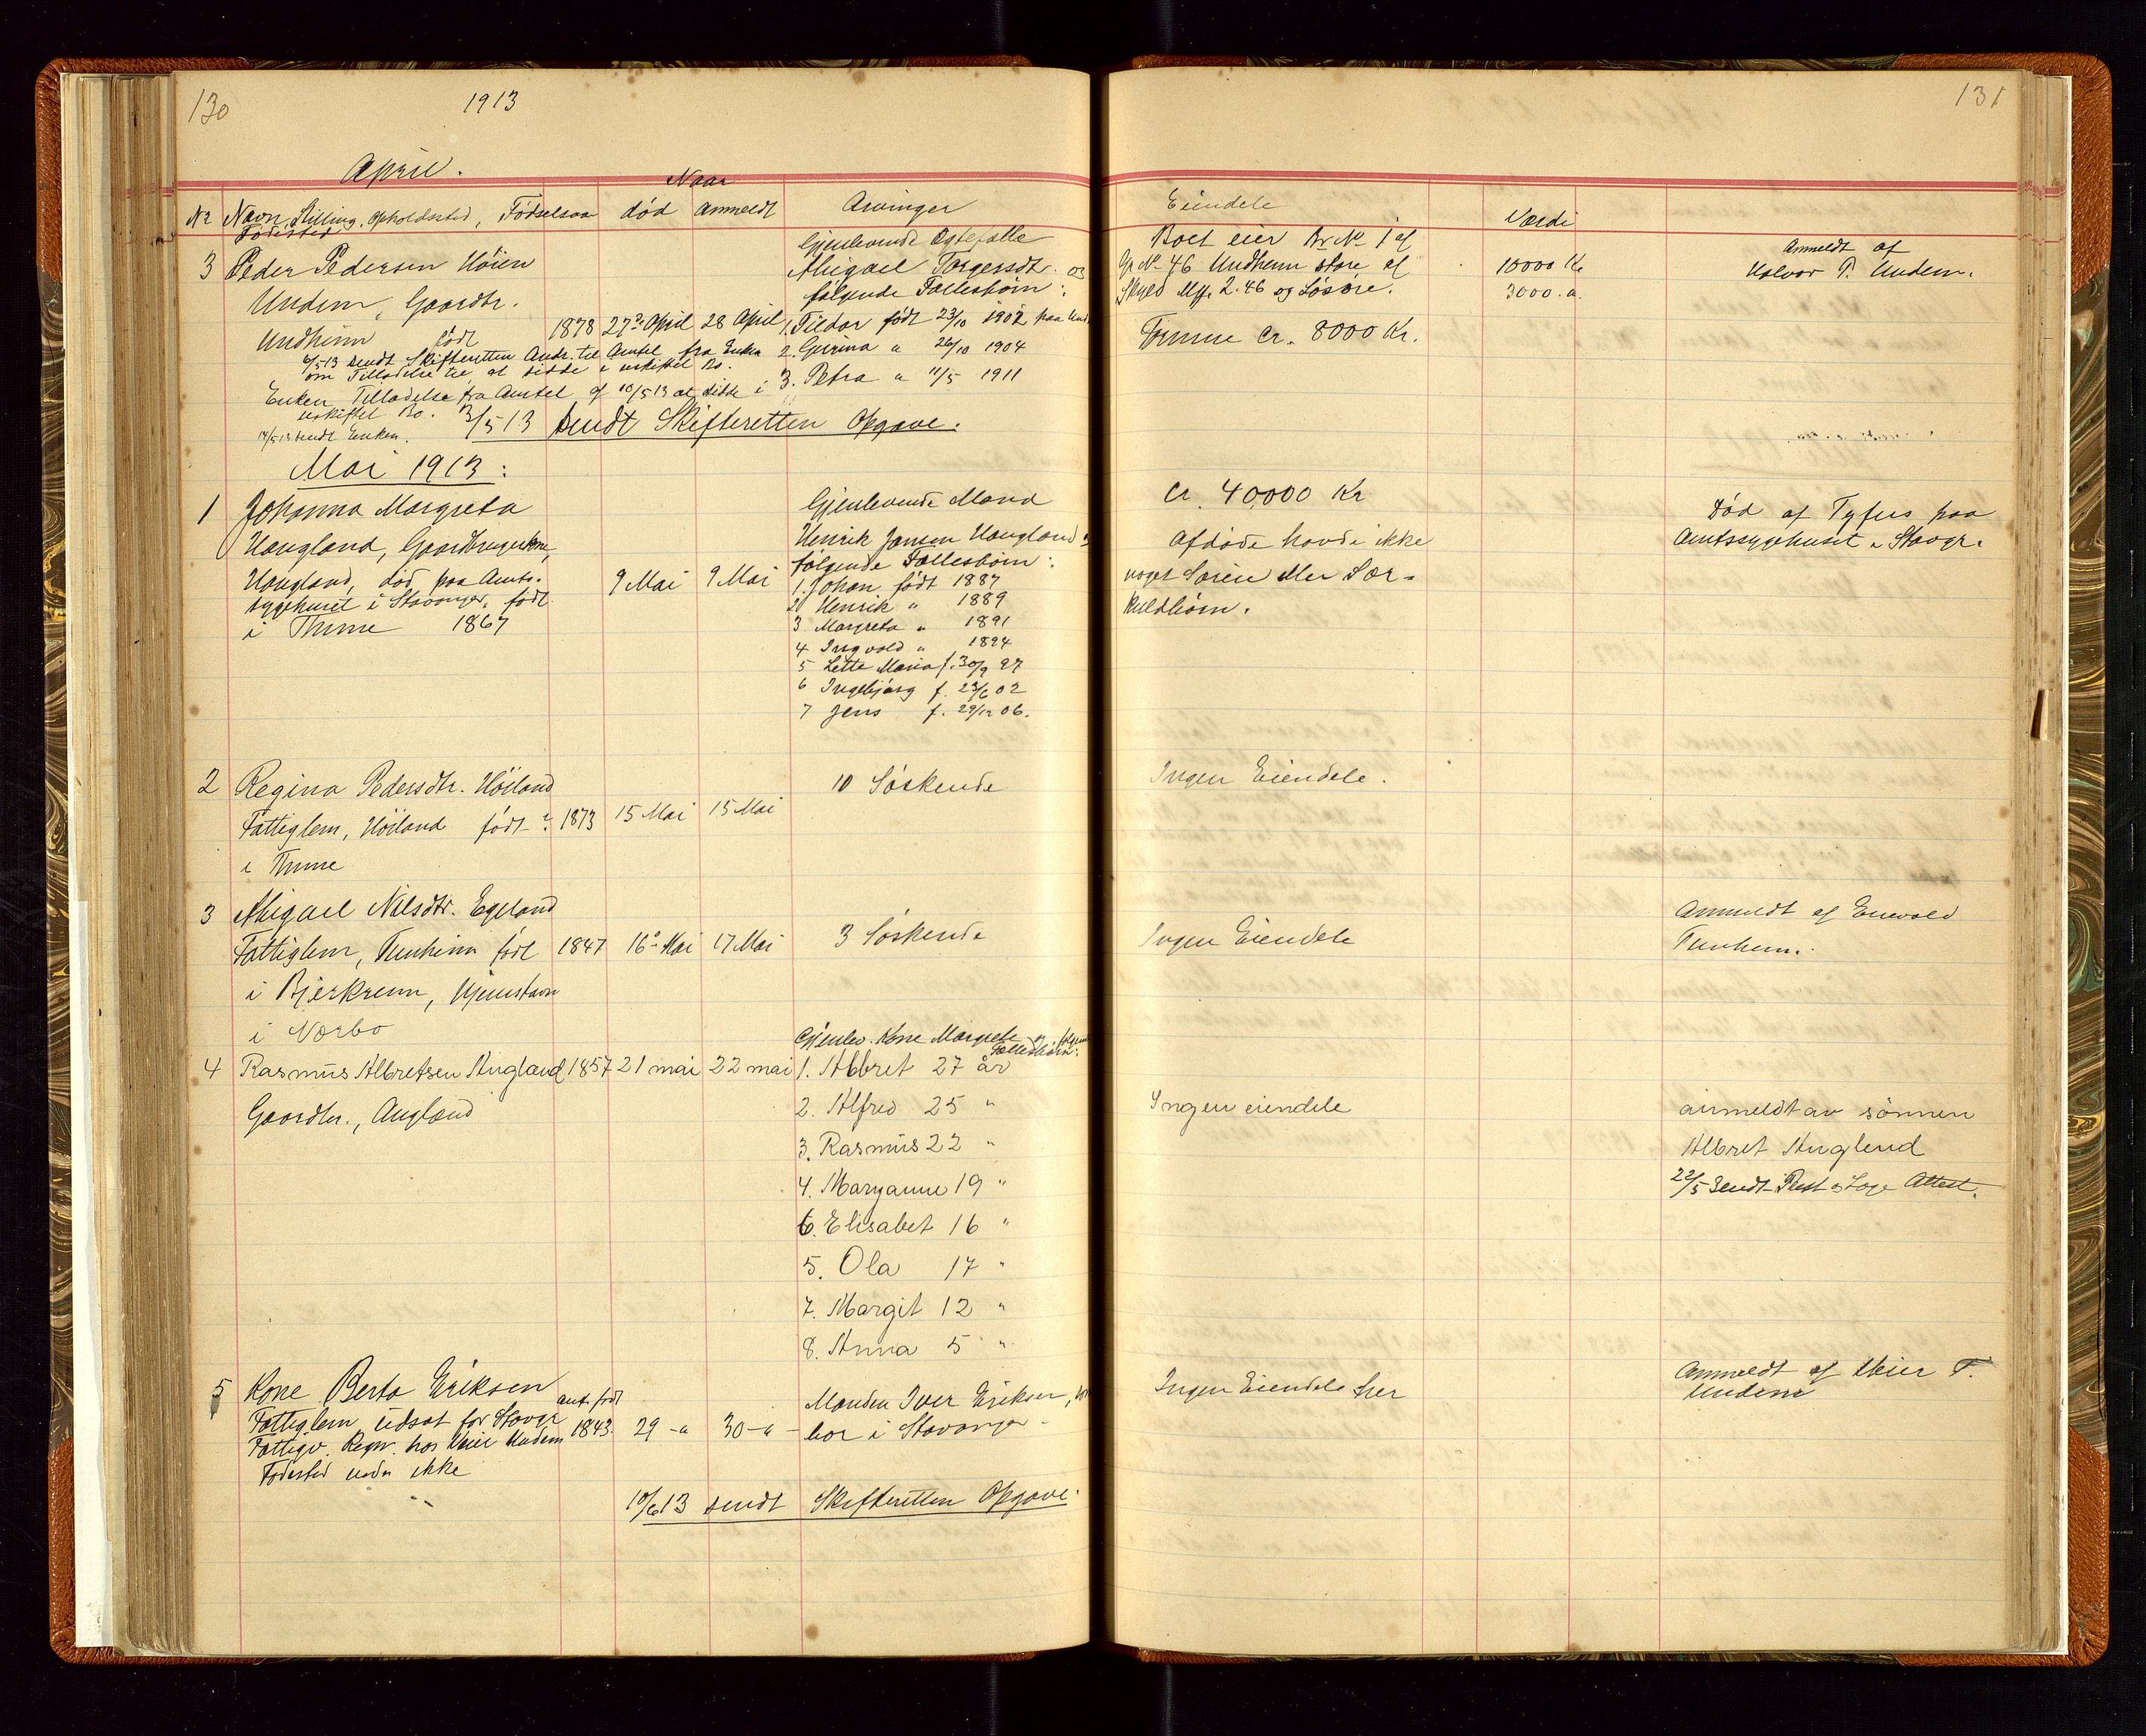 130
1913
April.
Naar
Nr Navn, Stilling, Opholdssted, Fødselsaar død anmeldt Arvinger
Fødested
3 Peder Pedersen Höien
Undem, Gaardbr.
Undheim født 1878 27de April 28 April
6/5-13 sendt Skifteretten Andr. til Amtet fra Enken
om Tilladelse til at sidde i uskiftet Bo.
Enken Tilladelse fra Amtet af 10/5 13 at sidde i
uskiftet Bo.
14/5 13 sendt Enken. 3/5 13 sendt Skifteretten Opgave.
Gjenlevende Egtefælle
Abigael Torgersdtr. og
følgende Fællesbørn:
1. Tildar født 23/10 1902 paa
2. Gurina " 26/10 1904
3. Petra " 11/5 1911
Mai 1913:
1 Johanna Margreta
Haugland, Gaardbrugerkone,
Haugland, død paa Amts-
sygehuset i Stavanger, født 9 Mai 9 Mai
i Thime 1867
Gjenlevende Mand
Henrik Jansen Haugland
følgende Fællesbørn:
1. Johan født 1887
2 Henrik " 1889
3 Margreta " 1891
4 Ingvald " 1894
5 Lette Maria f. 30/9 97
6 Ingebjørg f. 23/6 02
7 Jens f. 29/12 06.
2 Regina Pedersdtr. Höiland 10 Søskende
Fattiglem, Höiland født 1873 15 Mai 15 Mai
i Thime
3 Abigael Nilsdtr. Egeland
Fattiglem, Tunheim født 1847 16de Mai 17 Mai 3 Søskende
i Bjerkreim, Hjemstavn
i Nærbø
4 Rasmus Albretsen Angland 1857 21 mai 22 mai
Gaardbr., Angland
Gjenlev. Kone Margrete og
Fællesbørn:
1. Albret 27 år
2. Alfred 25 "
3. Rasmus 22 "
4. Maryanne 19 "
6. Elisabet 16 "
5. Ola 17 "
7. Margit 12 "
8. Anna 5 "
5 Kone Berta Eriksen
Fattiglem udsat for Stavgr. ant. født
Fattigv. Regn. hos Meier Undem 1843 29 -"- 30 -"-
Fødested vides ikke
Manden Iver Eriksen,
bor i Stavanger
10/6 13 sendt Skifteretten Opgave.
131
Eiendele Værdi
Boet eier Br No 1 af
Gr No 46 Undheim store af 10000 Kr
Skyld My. 2.46 og Løsøre. 3000. ".
Formue cr. 8000 Kr.
Anmeldt af
Halvor P. Undem.
cr. 40,000 Kr
Afdøde havde ikke
noget Særeie eller Sær-
kuldbørn.
Død af Tyfus paa
Amtssygehuset i Stavgr.
Ingen Eiendele.
Ingen Eiendele
Anmeldt af Enevald
Tunheim.
Ingen eiendele
anmeldt av sønnen
Albret Anglend
22/5 sendt Attest.
Ingen Eiendele her
Anmeldt af Meier T.
Undem